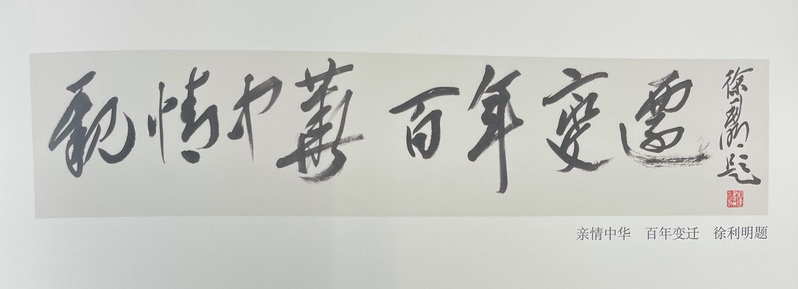 親情中華 百年變遷
徐利明題
亲情中华 百年变迁 徐利明题